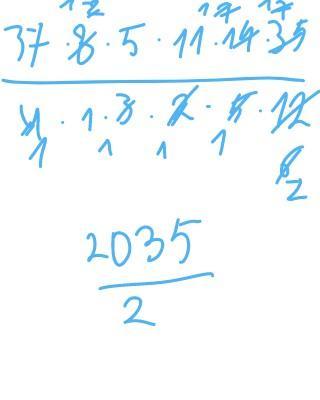 1 2 1 7 1 7
37 · 8 · 5 · 11 · 14 · 35
4 · 1 · 3 · 2 · 5 · 12
1 1 1 1 6
2
2035
2